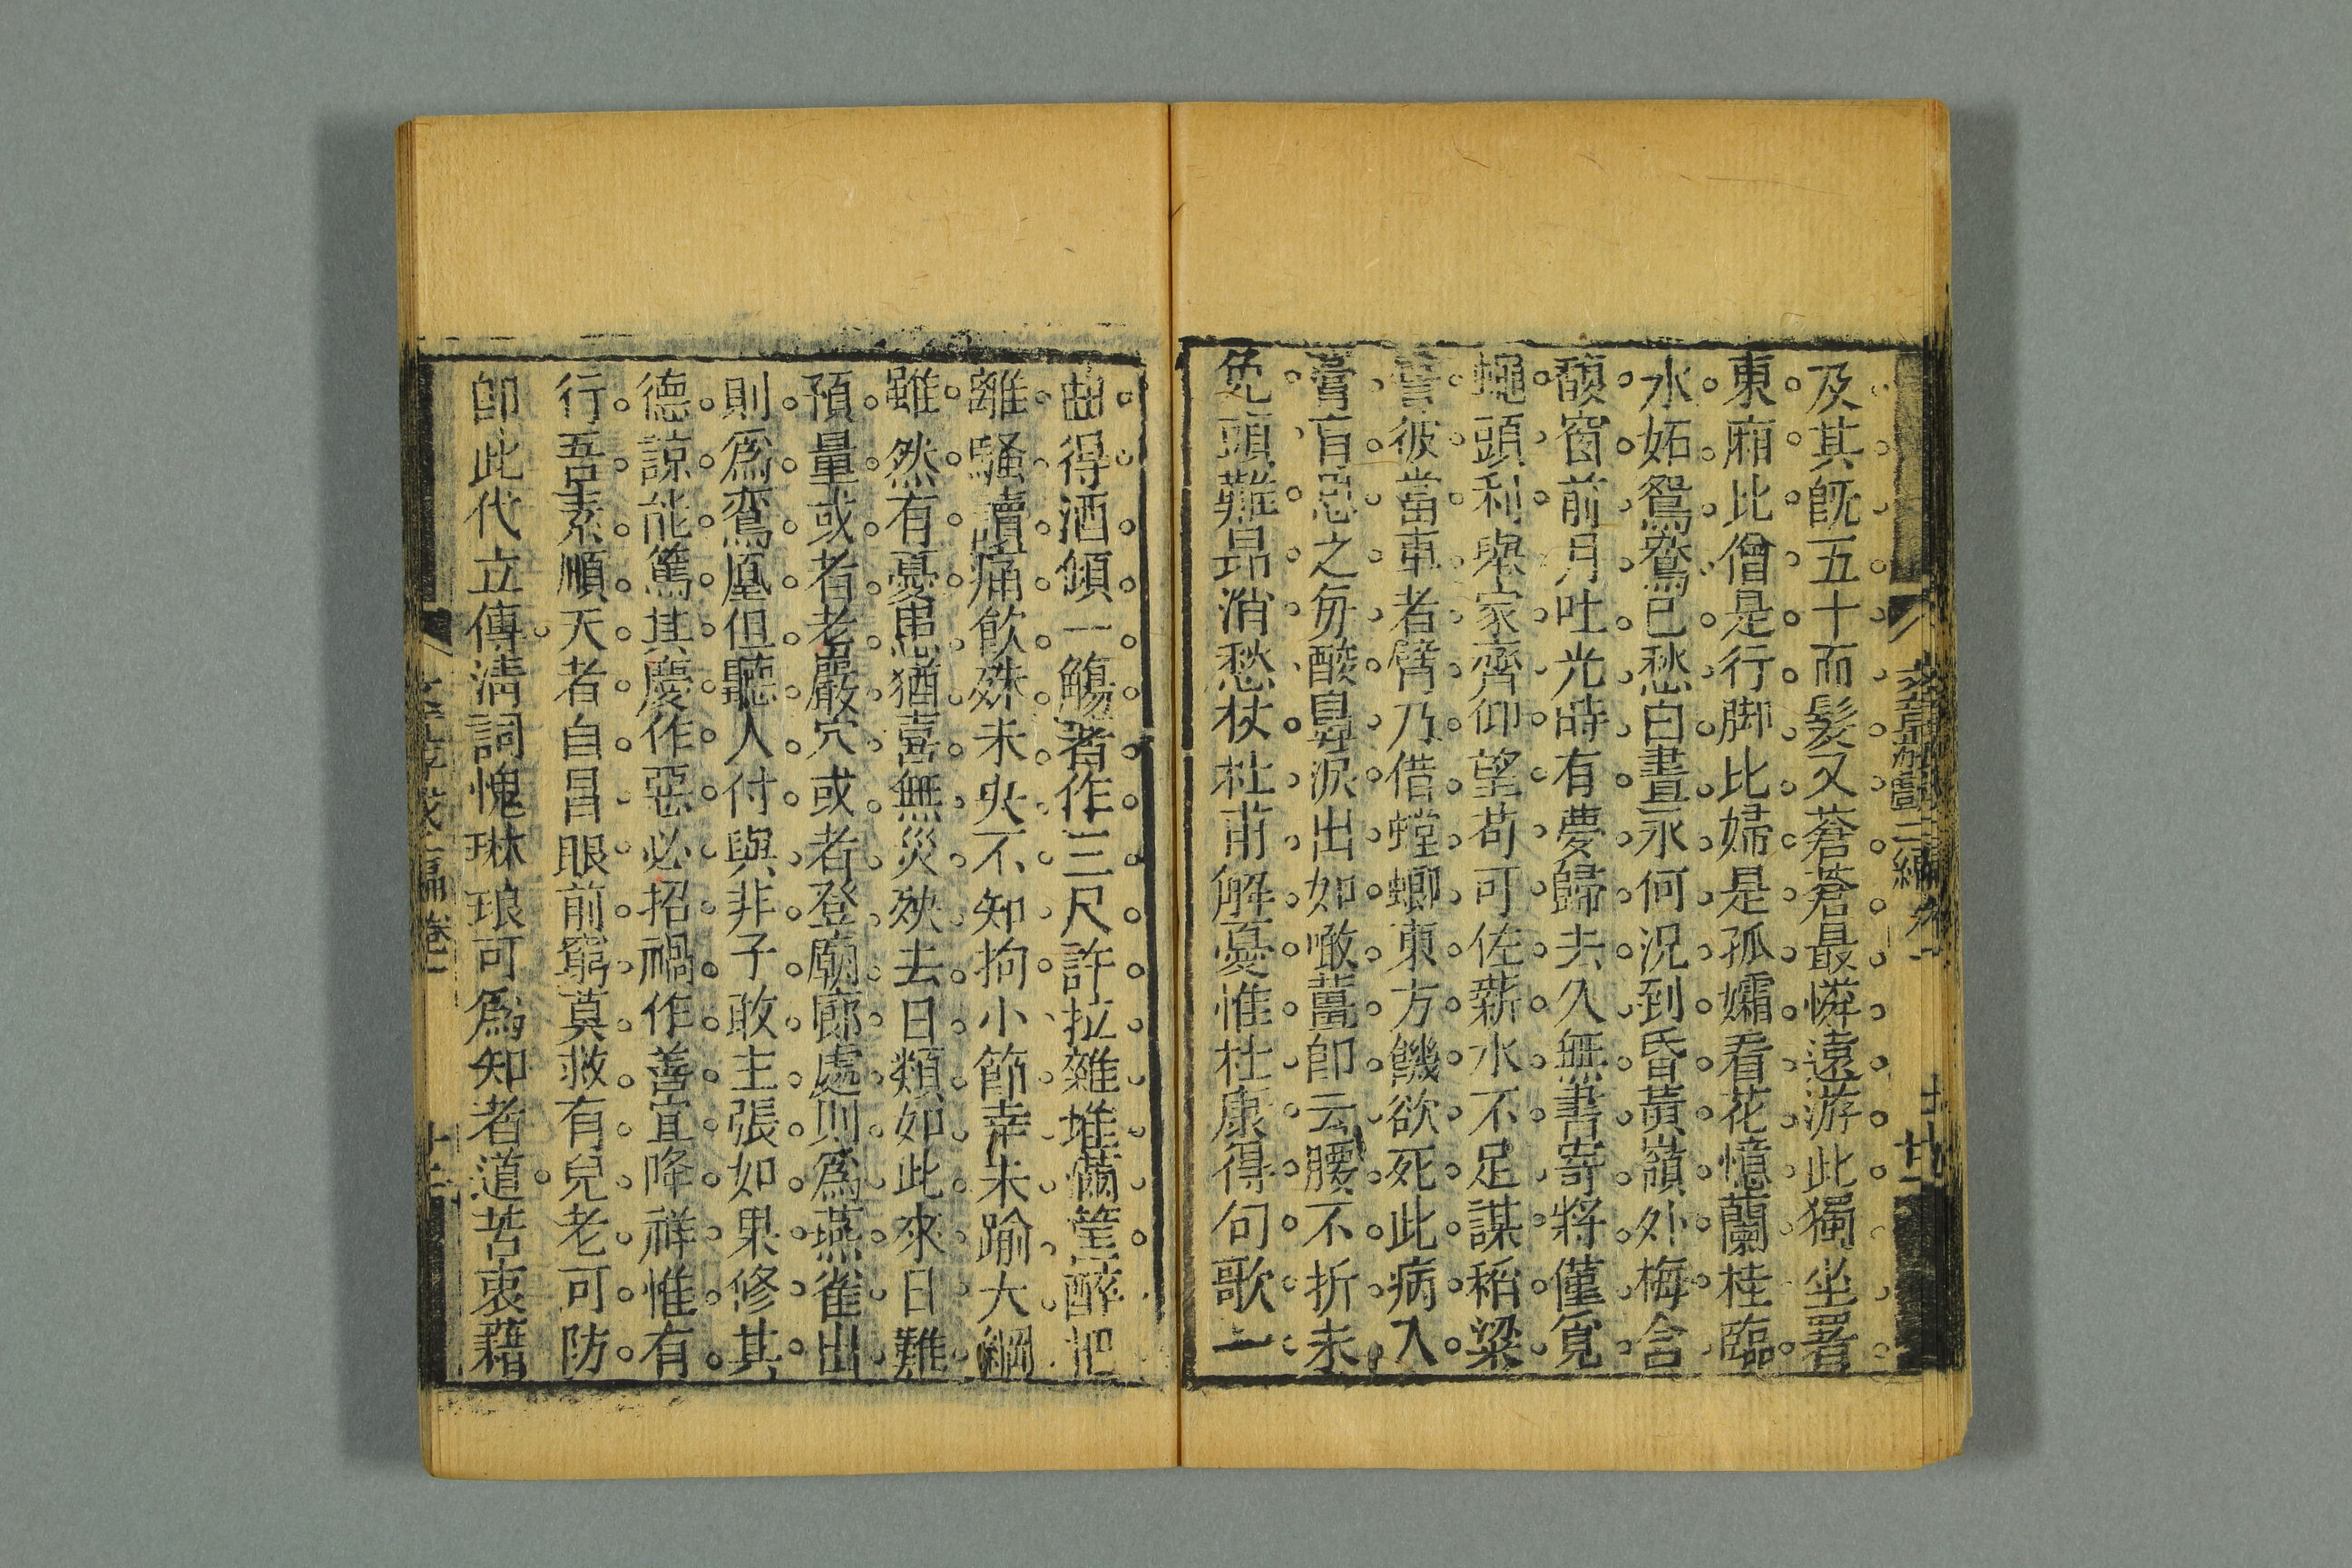 及其旣五十而髮又蒼蒼最憐遠游此獨坐署
東廂比僧是行脚比婦是孤孀看花憶蘭桂臨
水妬鴛鴦已愁白晝永何況到昏黃嶺外梅含
馥窗前月吐光時有夢歸去久無書寄將僅覓
蠅頭利舉家齊仰望苟可佐薪水不足謀稻粱
譬彼當車者臂乃借螳螂東方饑欲死此病入
膏肓忍之每酸鼻淚出如噉薑卽云腰不折未
免頭難昂消愁杖杜甫解憂惟杜康得句歌一
曲得酒傾一觴著作三尺許拉雜堆滿筐醉把
離騷讀痛飮殊未央不知拘小節幸未踰大綱
雖然有憂患猶喜無災殃去日類如此來日難
預量或者老巖穴或者登廟廊處則爲燕雀出
則爲鸞凰但聽人付與非子敢主張如果修其
德諒能篤其慶作惡必招禍作善宜降祥惟有
行吾素順天者自昌眼前窮莫救有兒老可防
卽此代立傳淸詞愧琳琅可爲知者道苦衷藉